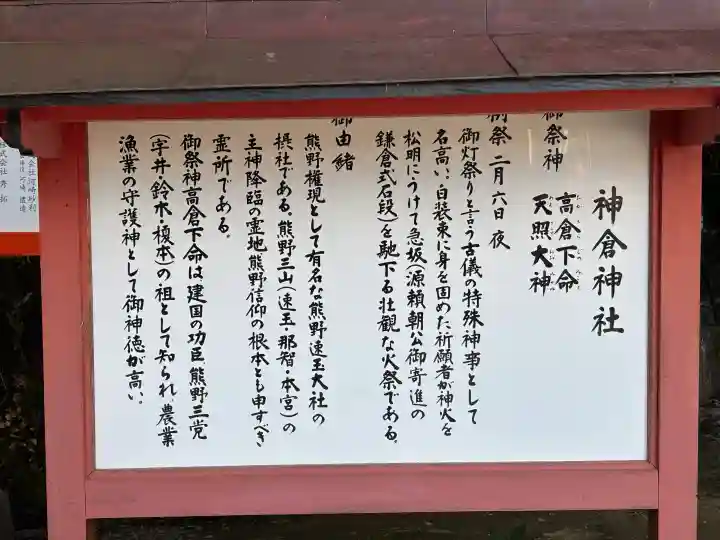 神倉神社
御祭神
高倉下命
天照大神
例祭 二月六日夜
御灯祭りと言う古儀の特殊神事として
名高い、白装束に身を固めた祈願者が神火を
松明にうけて急坂(源頼朝公御寄進の
鎌倉式石段)を馳下る壮観な火祭である。
御由緒
熊野権現として有名な熊野速玉大社の
摂社である。熊野三山(速玉・那智・本宮)の
主神降臨の霊地熊野信仰の根本とも申すべき
霊所である。
御祭神高倉下命は建国の功臣、熊野三党
(宇井・鈴木・榎本)の祖として知られ、農業
漁業の守護神として御神徳が高い。